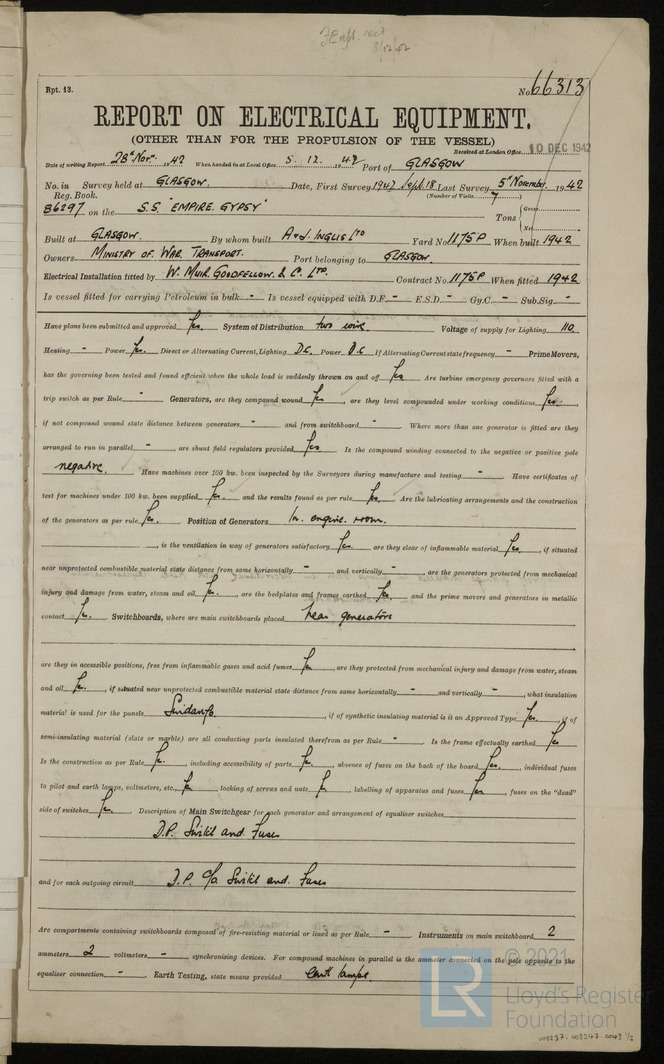 Rpt. 13.
No. 66313
REPORT ON ELECTRICAL EQUIPMENT.
(OTHER THAN FOR THE PROPULSION OF THE VESSEL)
Received at London Office 10 DEC 1942
Date of writing Report 28th Novr. 1942 When handed in at Local Office 5. 12. 1942 Port of GLASGOW
No. in Survey held at GLASGOW. Date, First Survey 1942 Sept. 18 Last Survey 5th November 1942
Reg. Book. (Number of Visits 7)
86297 on the S.S. "EMPIRE GYPSY" Tons {Gross
Net
Built at GLASGOW. By whom built A & J. INGLIS LTD Yard No. 1175P When built 1942
Owners MINISTRY OF WAR TRANSPORT. Port belonging to GLASGOW
Electrical Installation fitted by W. MUIR GOODFELLOW & Co. LTD. Contract No. 1175P When fitted 1942
Is vessel fitted for carrying Petroleum in bulk - Is vessel equipped with D.F. - E.S.D. - Gy.C. - Sub.Sig. -
Have plans been submitted and approved Yes. System of Distribution two wire Voltage of supply for Lighting 110
Heating - Power Yes. Direct or Alternating Current, Lighting D.C. Power D.C If Alternating Current state frequency - Prime Movers,
has the governing been tested and found efficient when the whole load is suddenly thrown on and off Yes Are turbine emergency governors fitted with a
trip switch as per Rule - Generators, are they compound wound Yes, are they level compounded under working conditions Yes
if not compound wound state distance between generators - and from switchboard - Where more than one generator is fitted are they
arranged to run in parallel -, are shunt field regulators provided Yes Is the compound winding connected to the negative or positive pole
negative. Have machines over 100 kw. been inspected by the Surveyors during manufacture and testing - Have certificates of
test for machines under 100 kw. been supplied Yes. and the results found as per rule Yes. Are the lubricating arrangements and the construction
of the generators as per rule Yes. Position of Generators In engine room.
, is the ventilation in way of generators satisfactory Yes. are they clear of inflammable material Yes, if situated
near unprotected combustible material state distance from same horizontally - and vertically -, are the generators protected from mechanical
injury and damage from water, steam and oil Yes., are the bedplates and frames earthed Yes. and the prime movers and generators in metallic
contact Yes. Switchboards, where are main switchboards placed near generators
are they in accessible positions, free from inflammable gases and acid fumes Yes, are they protected from mechanical injury and damage from water, steam
and oil Yes., if situated near unprotected combustible material state distance from same horizontally - and vertically -, what insulation
material is used for the panels Sindanyo., if of synthetic insulating material is it an Approved Type Yes, if of
semi-insulating material (slate or marble) are all conducting parts insulated therefrom as per Rule - Is the frame effectually earthed Yes
Is the construction as per Rule Yes., including accessibility of parts Yes., absence of fuses on the back of the board Yes., individual fuses
to pilot and earth lamps, voltmeters, etc., Yes locking of screws and nuts Yes, labelling of apparatus and fuses Yes, fuses on the "dead"
side of switches Yes. Description of Main Switchgear for each generator and arrangement of equaliser switches
D.P. Switch and Fuses
and for each outgoing circuit D.P. c/o Switch and Fuses
Are compartments containing switchboards composed of fire-resisting material or lined as per Rule - Instruments on main switchboard 2
ammeters 2 voltmeters - synchronising devices. For compound machines in parallel is the ammeter connected on the pole opposite to the
equaliser connection - Earth Testing, state means provided earth lamps.
LR © 2021
Lloyd's Register
Foundation
008237-008247-0049 1/2